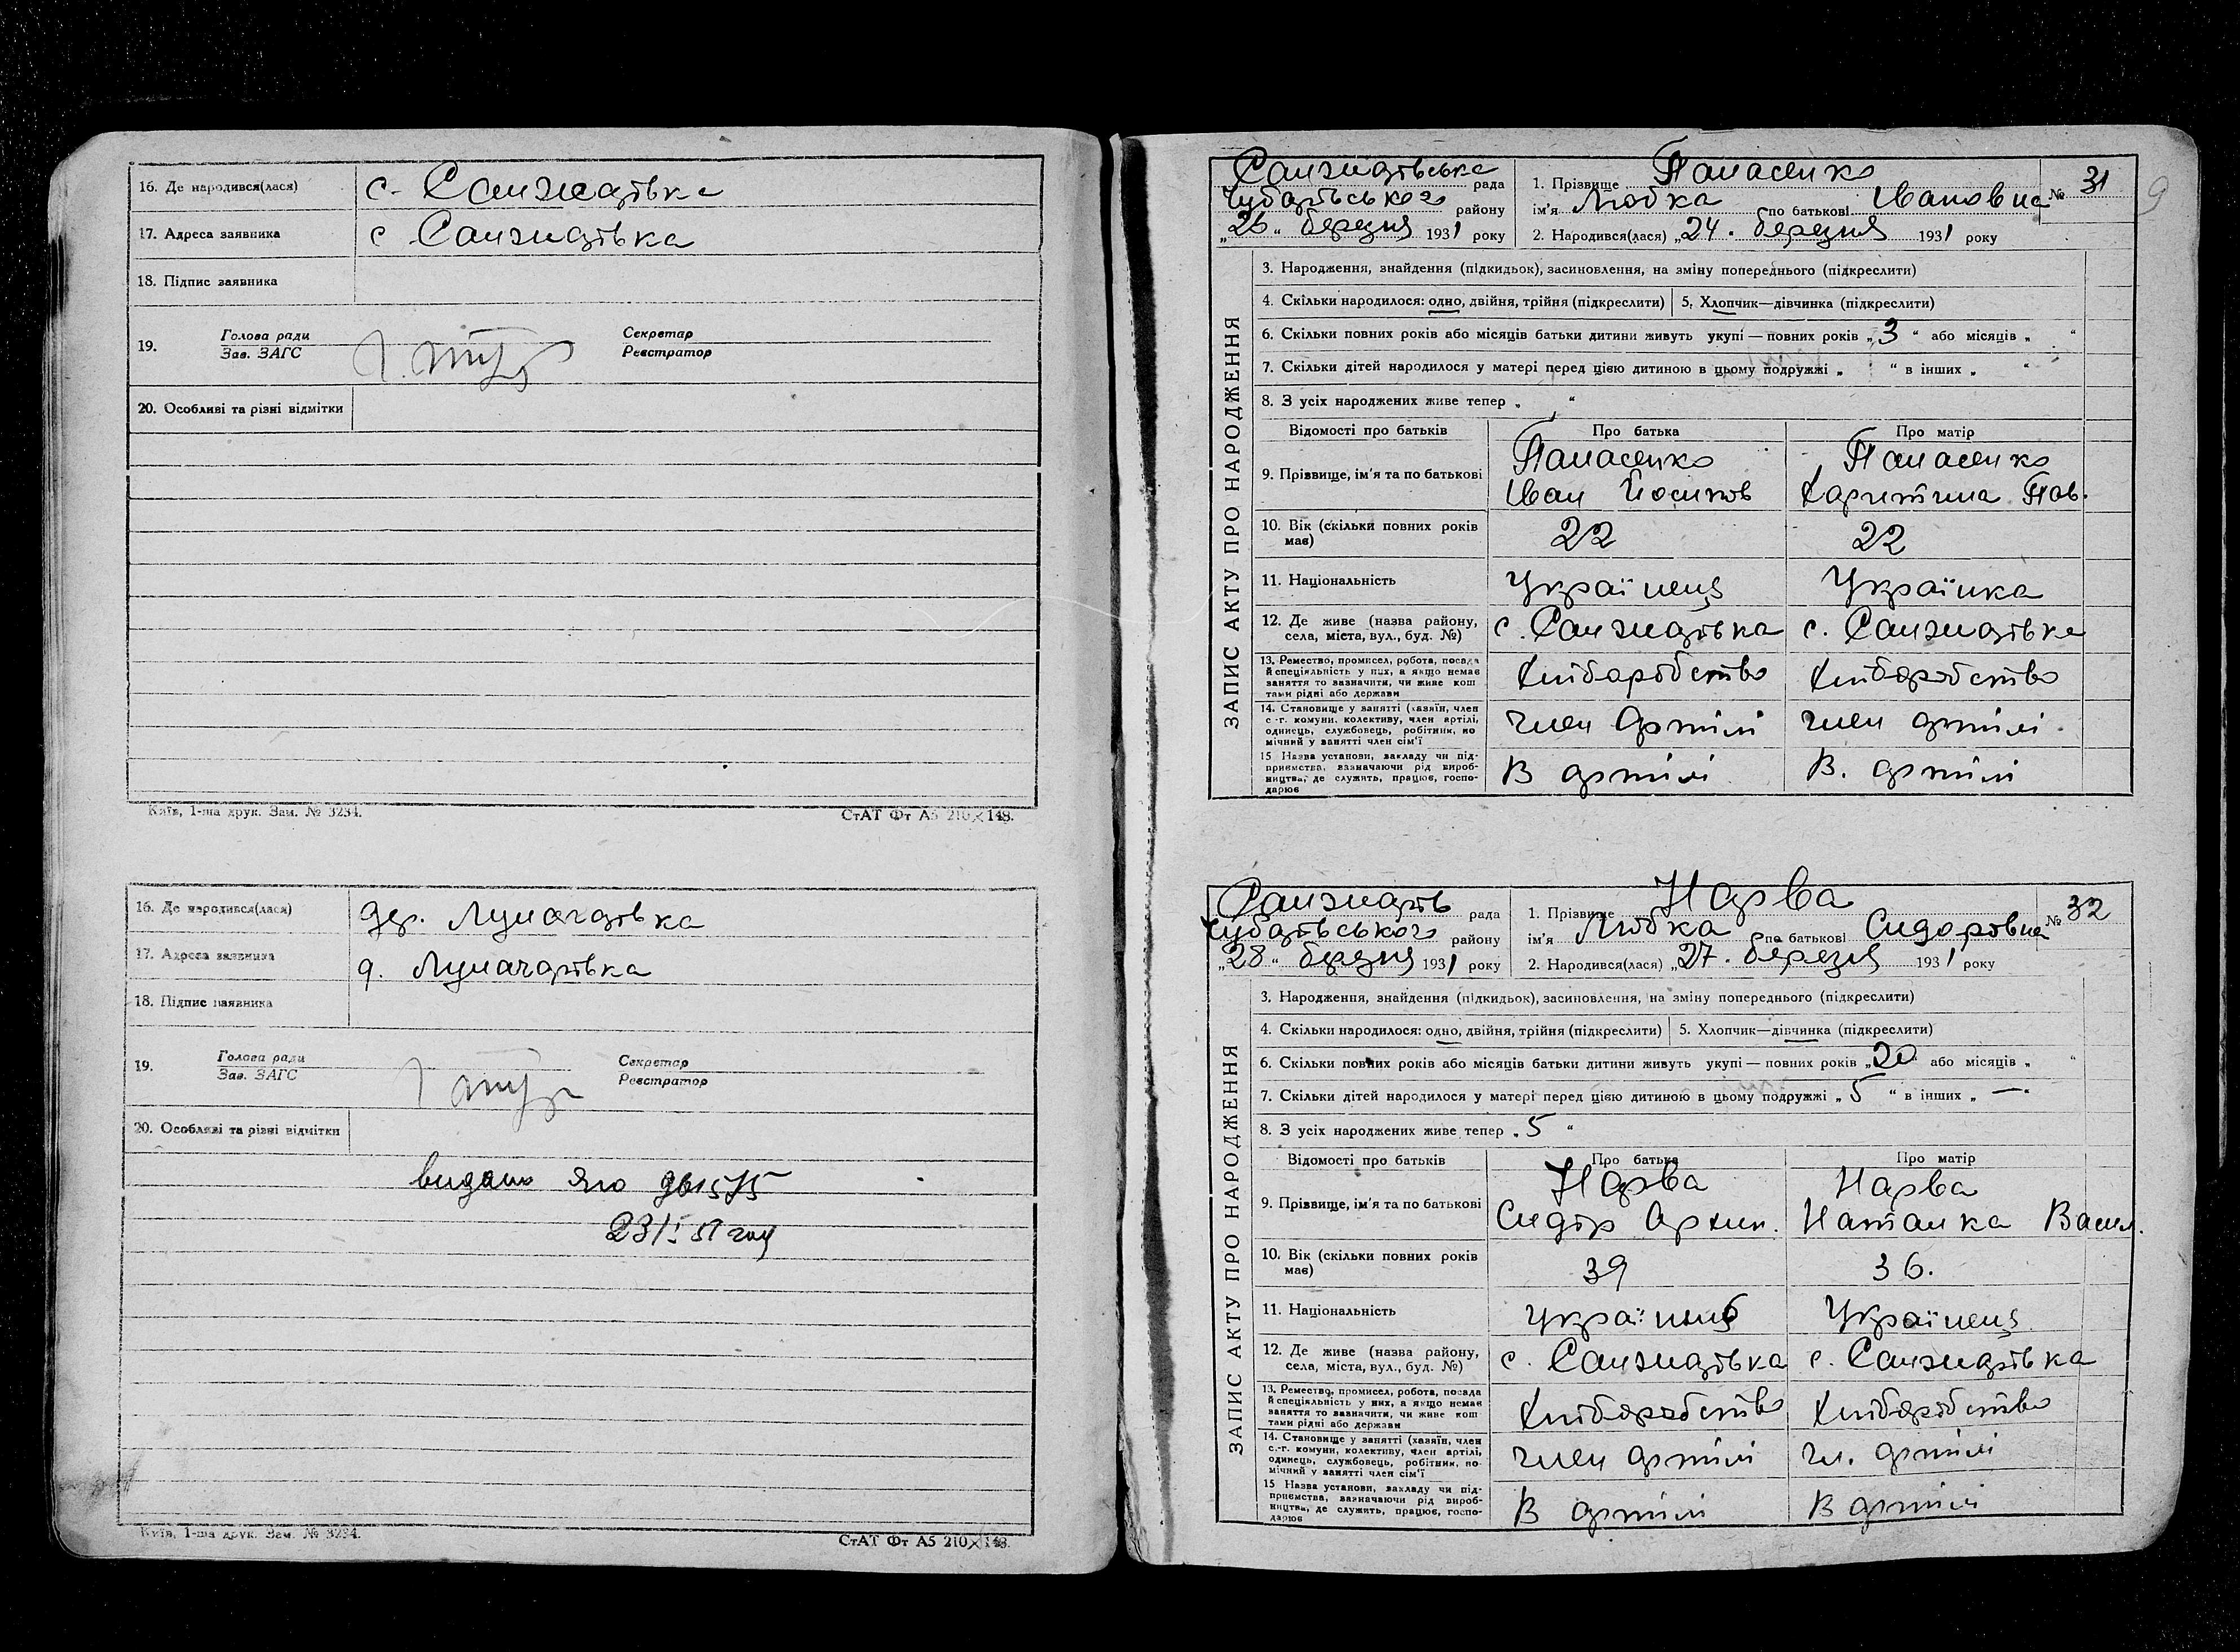 16. Де народився(лася) с. Санжарівка
17. Адреса заявника с Санжарівка
18. Підпис заявника
19. Голова ради
Зав. ЗАГС
Секретар
Реєстратор
20. Особливі та різні відмітки
Київ, 1-ша друк. Зам. № 3234.
СтАТ Фт А5 210×148.
16. Де народився(лася) дер. Луначарівка
17. Адреса заявника д. Луначарівка
18. Підпис заявника
19. Голова ради
Зав. ЗАГС
Секретар
Реєстратор
20. Особливі та різні відмітки
видано
23/I 51 год
Київ, 1-ша друк. Зам. № 3234.
СтАТ Фт А5 210×148.
9
Санжарівська рада
Чубарівського району
„26“ березня 1931 року
1. Прізвище Панасенко № 31
ім'я Любка по батькові Івановна
2. Народився(лася) „24. березня 1931 року
ЗАПИС АКТУ ПРО НАРОДЖЕННЯ
3. Народження, знайдення (підкидьок), засиновлення, на зміну попереднього (підкреслити)
4. Скільки народилося: одно, двійня, трійня (підкреслити) 5. Хлопчик—дівчинка (підкреслити)
6. Скільки повних років або місяців батьки дитини живуть укупі — повних років „3“ або місяців „ “
7. Скільки дітей народилося у матері перед цією дитиною в цьому подружжі „ “ в інших „ “
8. З усіх народжених живе тепер „ “
Відомості про батьків Про батька Про матір
9. Прізвище, ім'я та по батькові Панасенко Панасенко
Іван Йосипов Харитина Пав.
10. Вік (скільки повних років має) 22 22
11. Національність Українець Українка
12. Де живе (назва району, села, міста, вул., буд. №) с. Санжарівка с. Санжарівка
13. Ремество, промисел, робота, посада й спеціяльність у них, а якщо немає заняття то зазначити, чи живе коштами рідні або держави Хліборобство Хліборобство
14. Становище у занятті (хазяїн, член с.-г. комуни, колективу, член артілі, одинець, службовець, робітник, помічний у занятті член сім'ї член артілі член артілі.
15 Назва установи, закладу чи підприємства, зазначаючи рід виробництва, де служить, працює, господарює В артілі В. артілі
Санжарів рада
Чубарівського району
„28“ березня 1931 року
1. Прізвище Нарва № 32
ім'я Любка по батькові Сидорівна
2. Народився(лася) „27. березня 1931 року
ЗАПИС АКТУ ПРО НАРОДЖЕННЯ
3. Народження, знайдення (підкидьок), засиновлення, на зміну попереднього (підкреслити)
4. Скільки народилося: одно, двійня, трійня (підкреслити) 5. Хлопчик—дівчинка (підкреслити)
6. Скільки повних років або місяців батьки дитини живуть укупі — повних років „20“ або місяців „ “
7. Скільки дітей народилося у матері перед цією дитиною в цьому подружжі „5“ в інших „—“
8. З усіх народжених живе тепер „5“
Відомості про батьків Про батька Про матір
9. Прізвище, ім'я та по батькові Нарва Нарва
Сидір Архип. Наталка Васил.
10. Вік (скільки повних років має) 39 36.
11. Національність Українець Українець
12. Де живе (назва району, села, міста, вул., буд. №) с. Санжарівка с. Санжарівка
13. Ремество, промисел, робота, посада й спеціяльність у них, а якщо немає заняття то зазначити, чи живе коштами рідні або держави Хліборобство Хліборобство
14. Становище у занятті (хазяїн, член с.-г. комуни, колективу, член артілі, одинець, службовець, робітник, помічний у занятті член сім'ї член артілі чл. артілі
15 Назва установи, закладу чи підприємства, зазначаючи рід виробництва, де служить, працює, господарює В артілі В артілі